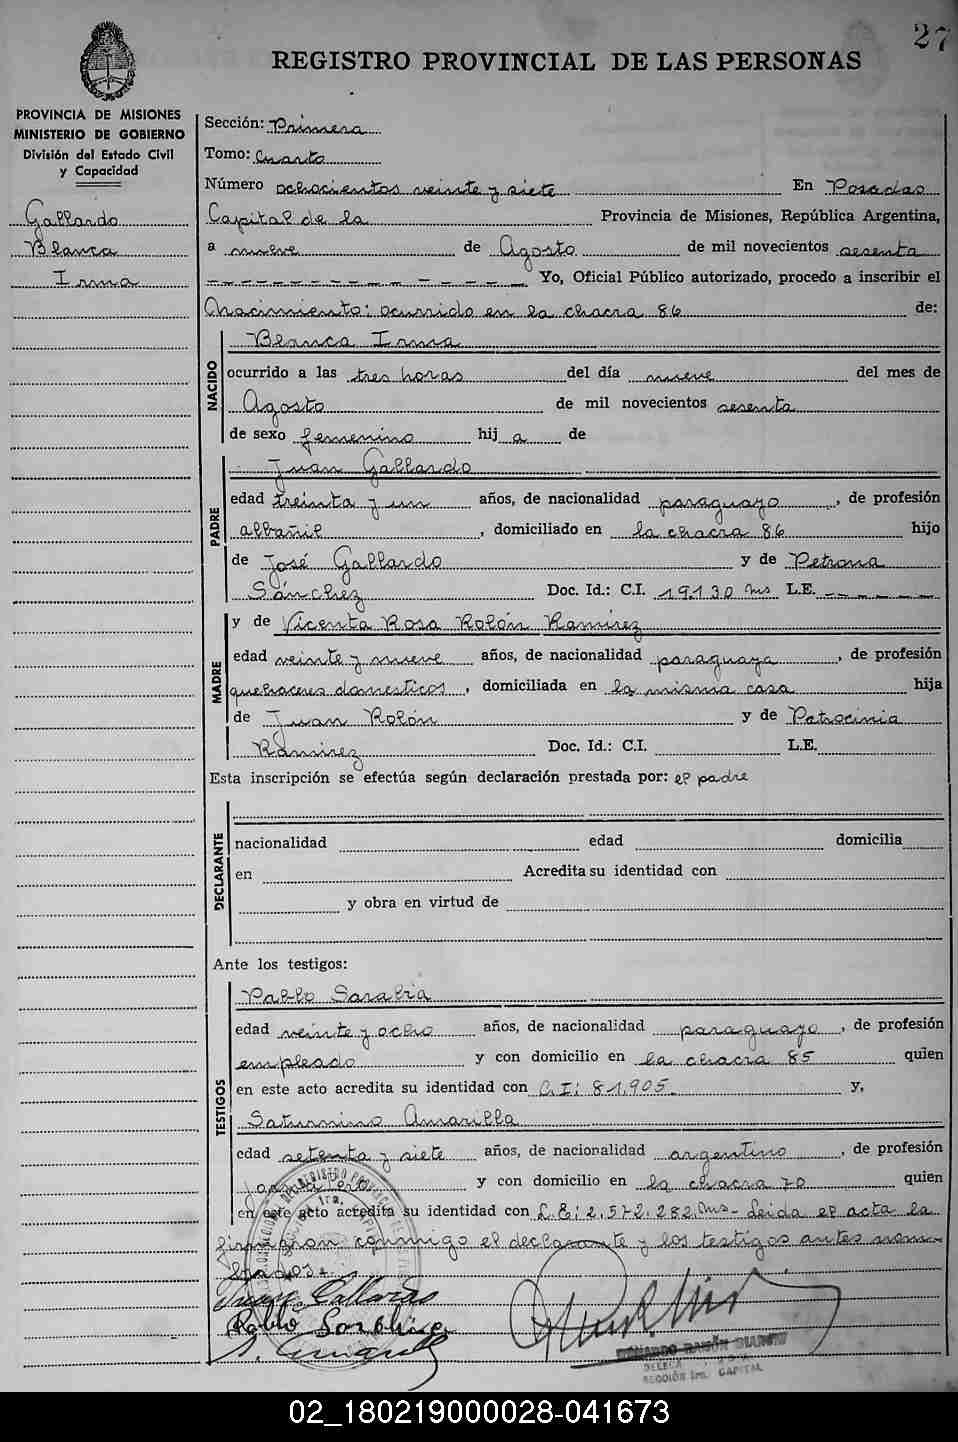 27
REGISTRO PROVINCIAL DE LAS PERSONAS
PROVINCIA DE MISIONES
MINISTERIO DE GOBIERNO
División del Estado Civil
y Capacidad
Gallardo
Blanca
Irma
Sección: Primera
Tomo: Cuarto
Número ochocientos veinte y siete En Posadas
Capital de la Provincia de Misiones, República Argentina,
a nueve de Agosto de mil novecientos sesenta
Yo, Oficial Público autorizado, procedo a inscribir el
Nacimiento: ocurrido en la chacra 86 de:
NACIDO
Blanca Irma
ocurrido a las tres horas del día nueve del mes de
Agosto de mil novecientos sesenta
de sexo femenino hij a de
PADRE
Juan Gallardo
edad treinta y un años, de nacionalidad paraguayo, de profesión
albañil, domiciliado en la chacra 86 hijo
de José Gallardo y de Petrona
Sánchez Doc. Id.: C.I. 19.130 Ms L.E.
MADRE
y de Vicenta Rosa Rolón Ramírez
edad veinte y nueve años, de nacionalidad paraguaya, de profesión
quehaceres domesticos, domiciliada en la misma casa hija
de Juan Rolón y de Patrocinia
Ramírez Doc. Id.: C.I. L.E.
Esta inscripción se efectúa según declaración prestada por: el padre
DECLARANTE
nacionalidad edad domicilia
en Acredita su identidad con
y obra en virtud de
Ante los testigos:
TESTIGOS
Pablo Sarabia
edad veinte y ocho años, de nacionalidad paraguayo, de profesión
empleado y con domicilio en la chacra 85 quien
en este acto acredita su identidad con C.I: 81.905.- y,
Saturnino Amarilla
edad setenta y siete años, de nacionalidad argentino, de profesión
jornalero y con domicilio en la chacra 70 quien
en este acto acredita su identidad con L.E: 2.572.282. Ms- Leida el acta la
firmaron conmigo el declarante y los testigos antes nom-
brados.
Juan Gallardo
Pablo Sarabia
S. Amarilla
SECCIÓN 1ra. CAPITAL
02_180219000028-041673